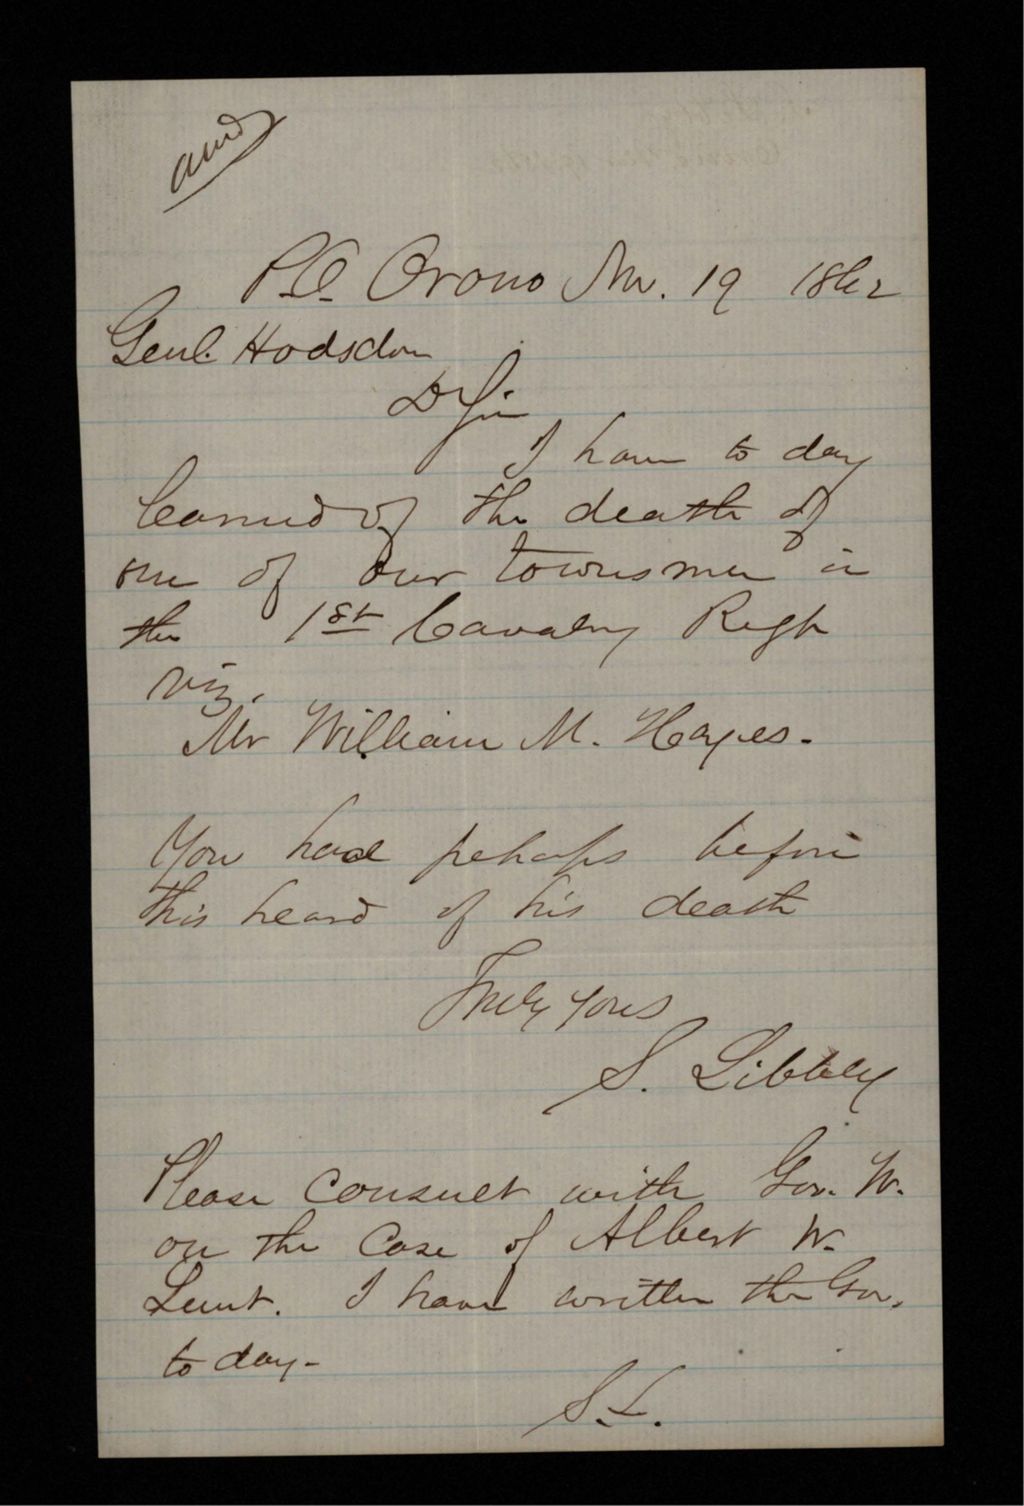 and
P.O. Orono Nov. 19 1862
Genl. Hodsdon
D Sir
I have to day
learned of the death of
one of our townsmen in
the 1st Cavalry Regt
viz.
Mr William M. Hayes.
You have pehaps before
this heard of his death
Truly yours
S. Libbey
Please consult with Gov. W.
on the case of Albert W.
Lunt. I have written the Gov.
to day-
S.L.